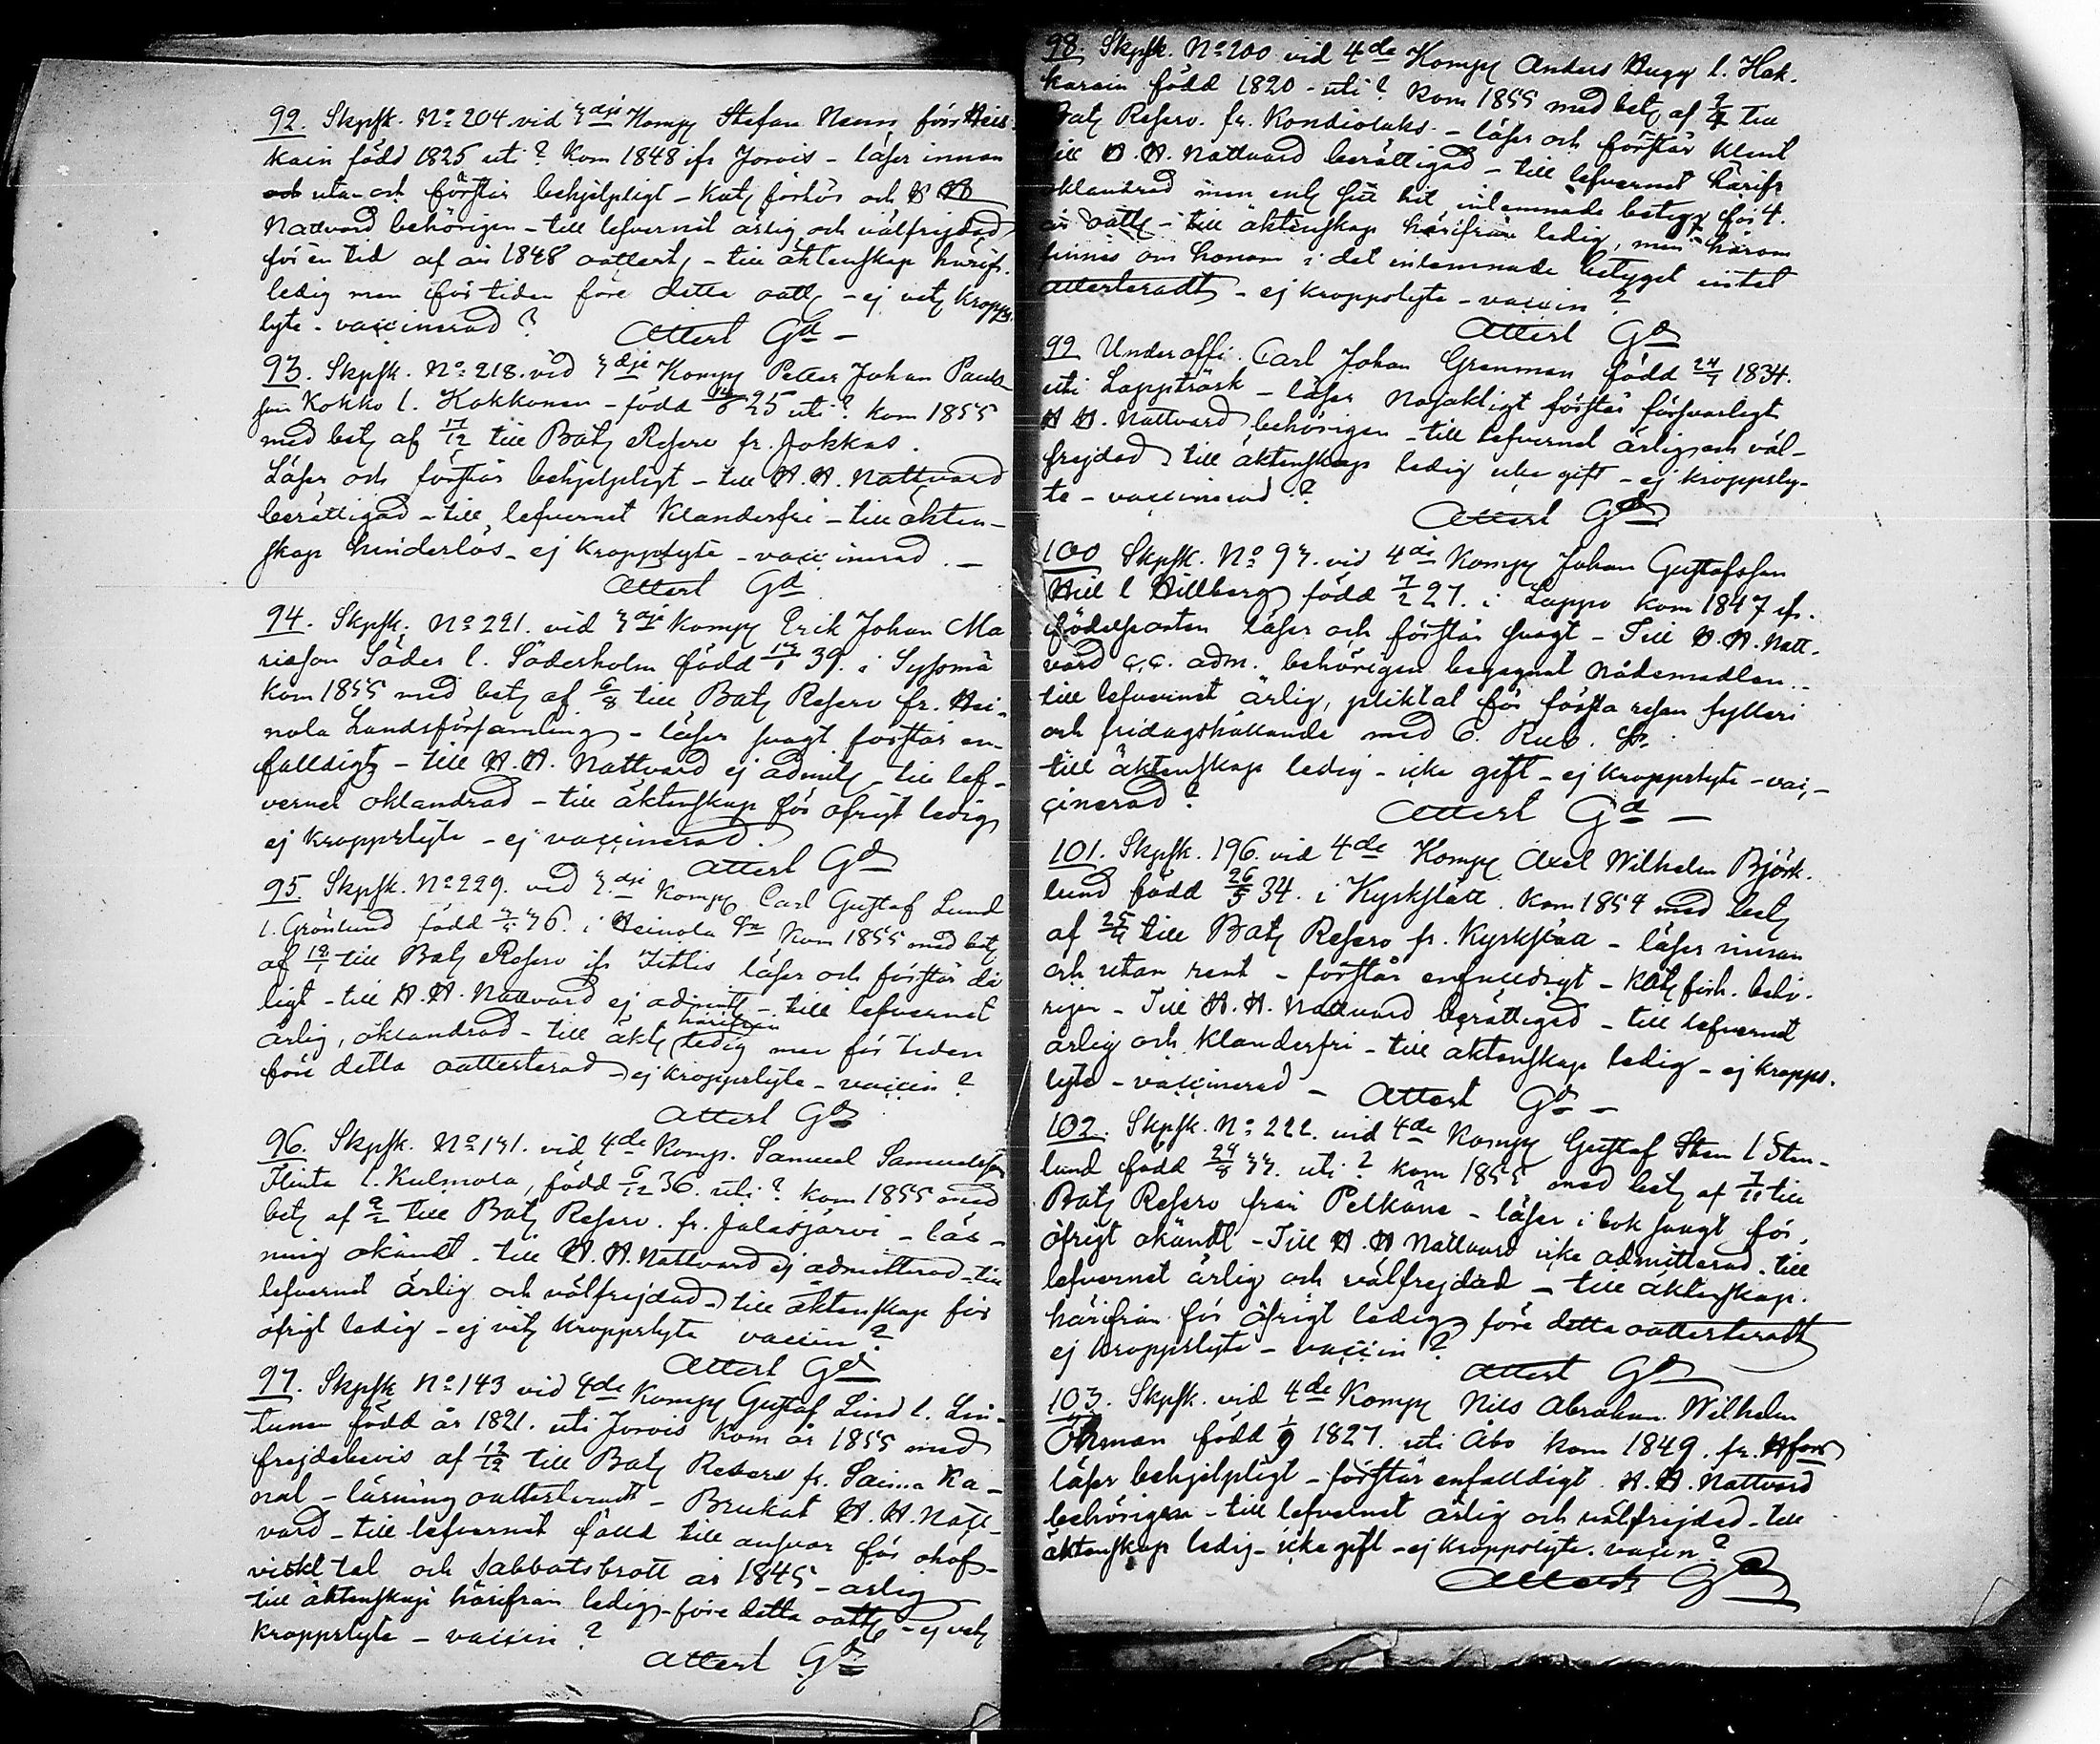 92. Skpsk. No 204 vid 3dje Kompy Stefan Neuss förr Heis-
kain född 1825 uti? Kom 1848 ifr Jorois - läser innan
och utan och förstår behjelpligt - Kat förhör och H H
Nattvard behörigen - till lefvernet ärlig och välfrejdad
för en tid af år 1848 oattest, - till äktenskap härifr.
ledig men för tiden före detta oatt - ej vet kropps-
lyte - vaccinerad?
Attest Gd -
93. Skpsk. No 218. vid 3dje Kompy Petter Johan Pauls-
son Kokko l. Kokkonen - född 14/8 25 uti? kom 1855
med bet af 17/12 till Bat Reserv fr. Jokkas.
Läser och förstår behjelpligt - till H. H. Nattvard
berättigad - till lefvernet Klanderfri - till äkten-
skap hinderlös - ej kroppslyte - vaccinerad. -
Attest Gd
94. Skpsk. No 221. vid 3dje Kompy Erik Johan Ma
riæson Söder l. Söderholm född 13/1 39. i Syssmä
kom 1855 med bet af 6/8 till Bat Reserv fr. Hei-
nola Landsförsamling - läser svagt förstår en-
falldigt - till H. H. Nattvard ej admit - till lef-
vernet oklandrad - till äktenskap för öfrigt ledig
ej kroppslyte - ej vaccinerad.
Attest Gd
95. Skpsk. No 229. vid 3dje Kompy Carl Gustaf Lund
l. Grönlund född 36. i Heinola Sn Kom 1855 med bet
af till Bat Reserv ifr Jittis läser och förstår då
ligt - till H. H. Nattvard ej admitt - till lefvernet
ärlig, oklandrad - till äkt härifrån ledig men för tiden
före detta oattesterad - ej kroppslyte - vaccin?
Attest Gd
96. Skpsk. No 131. vid 4de Komp. Samuel Samuelsson
Flinta l. Kulmola, född 6/12 36. uti? kom 1855 med
bet af 9/2 till Bat Reserv. fr. Jalasjärvi - läs-
ning okänd - till H. H. Nattvard ej admitterad - till
lefvernet ärlig och välfrejdad - till äktenskap för
öfrigt ledig - ej vet kroppslyte vaccin?
Attest Gd
97. Skpsk No 143 vid 4de Kompy Gustaf Lind l. Lin-
tunen född år 1821. uti Jorois Kom år 1855 med
frejdebevis af 12/12 till Bat Reserv fr. Saima Ka-
nal - läsning oattesteradt - Brukat H. H. Natt-
vard - till lefvernet fälld till ansvar för ohöf-
viskt tal och Sabbatsbrott år 1845 - ärlig
till äktenskap härifrån ledig - före detta oatt - ej vet
kroppslyte - vaccin?
Attest Gd
98. Skpsk. No 200 vid 4de Kompy Anders Hugg l. Hak-
karain född 1820 - uti? Kom 1855 med bet af 9/4 till
Bat Reserv. fr. Kondiolaks. - läser och förstår klent
till H. H. Nattvard berättigad - till lefvernet härifr
oklandrad men enl hit inlemnade betyg för 4.
år oatt - till äktenskap härifrån ledig, men härom
finnes om honom i det inlemnade betyget intet
attesteradt - ej kroppslyte - vaccin?
Attest Gd
99 Underoffi. Carl Johan Grenman född 24/7 1834.
uti Lappträsk - läser nöjaktigt förstår försvarligt
H H. Nattvard behörigen - till lefvernet ärlig och väl-
frejdad - till äktenskap ledig icke gift - ej kroppsly-
te - vaccinerad?
Attest Gd
100 Skpsk. No 93. vid 4de Kompy Johan Gustafsson
Hill l Hillberg född 7/2 27. i Lappo kom 1847 ifr.
födelseorten läser och förstår svagt - Till H. H. Natt-
vard adm. behörigen begagnat nådemedlen. -
till lefvernet ärlig, pliktat för första resan fylleri
och fridagshållande med 6. Rub. Sr.
till äktenskap ledig - icke gift - ej kroppslyte - vac-
cinerad?
Attest Gd -
101. Skpsk. 196. vid 4de Kompy Axel Wilhelm Björk-
lund född 26/5 34. i Kyrkslätt. Kom 1854 med bet
af till Bat Reserv fr. Kyrkslää - läser innan
och utan rent - förstår enfalldigt - Kat förh. behö-
rigen - Till H. H. Nattvard berättigad - till lefvernet
ärlig och Klanderfri - till äktenskap ledig - ej kropps-
lyte - vaccinerad -
Attest Gd -
102. Skpsk. No 222. vid 4de Kompy Gustaf Sten l Sten-
lund född 24/8 33. uti? kom 1855 med bet af 7/11 till
Bat Reserv från Pelkäne - läser i bok svagt för
öfrigt okändt - Till H. H Nattvard icke admitterad - till
lefvernet ärlig och välfrejdad - till äktenskap.
härifrån för öfrigt ledig före detta oattesteradt
ej kroppslyte - vaccin?
Attest Gd
103. Skpsk. vid 4de Kompy Nils Abraham Wilhelm
Öhman född 1/9 1827. uti Åbo kom 1849. fr. Hfors
läser behjelpligt - förstår enfalldigt H. H. Nattvard
behörigen - till lefvernet ärlig och välfrejdad - till
äktenskap ledig - icke gift - ej kroppslyte. vaccin?
Attest Gd